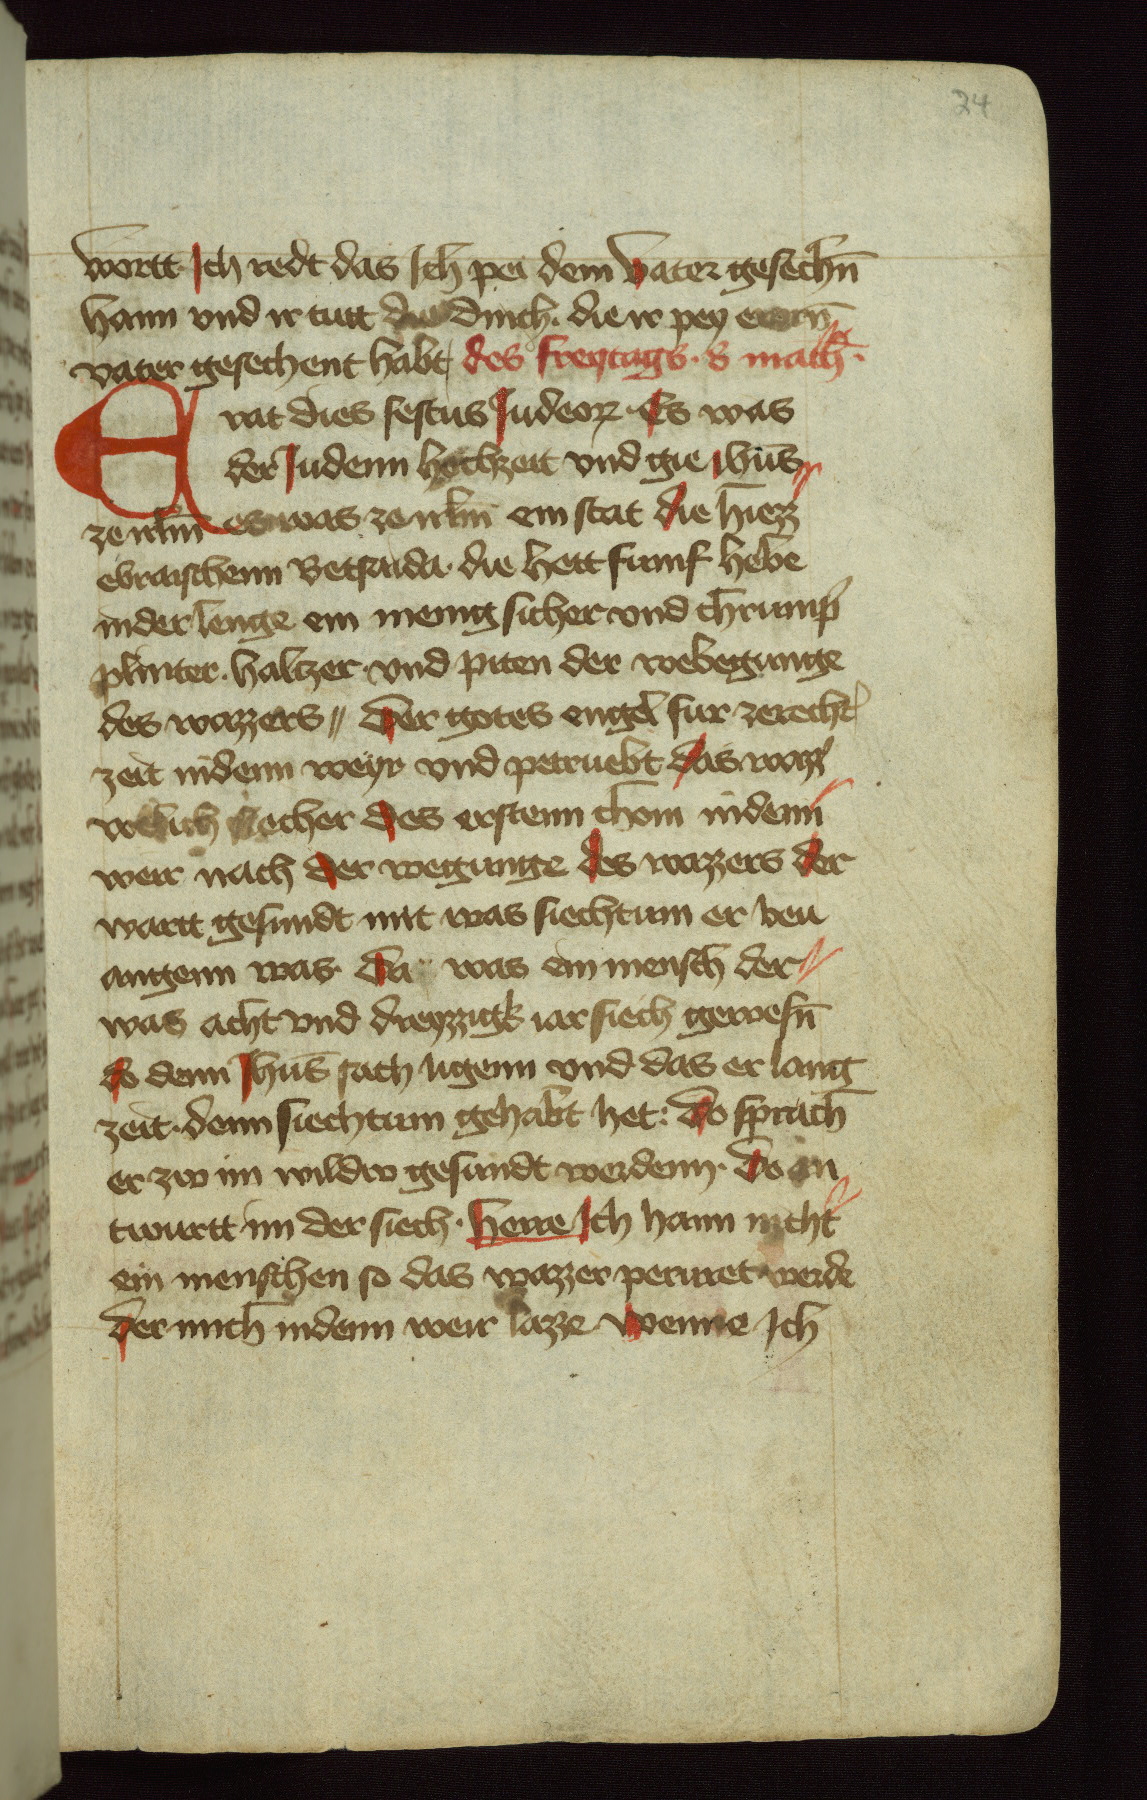 24
wortt Ich redt das Ich pei dem vater gesechn̄
hann vnd ir tutt die dinch. die ir pey ewrn̄
vater gesechent habt des freytags. s math̄.
Erat dies festus Iudeoꝝ. Es was
der Iudenn hochzeit vnd gie ihūs
ze irlm̄ es was ze irlm̄ ein stat die hiezz
ebraischenn Betsaida. die hett funf hebe
inder lenge ein menig sicher vnd chrump̄
plinter. haltzer. vnd piten der webegunge
des wazzers // Der gotes engel fur ze recht̄
zeit indenn weyr vnd petruebt das wazz̄
welich siecher des erstenn chom indenn
weir nach der wegunge des wazzers der
wartt gesundt mit was siechtum er beu
angenn was. Da was ein mensch der
was acht vnd dreyzzigk iar siech gewesn̄
do denn Ihūs sach ligenn vnd das er lang
zeit. denn siechtum gehabt het: do sprach
er zw im wildw gesundt werdenn. Do an
twurtt im der siech. Herre Ich hann nicht
ein menschen so das wazzer peruret werde
der mich indenn weir lazze wenne Ich